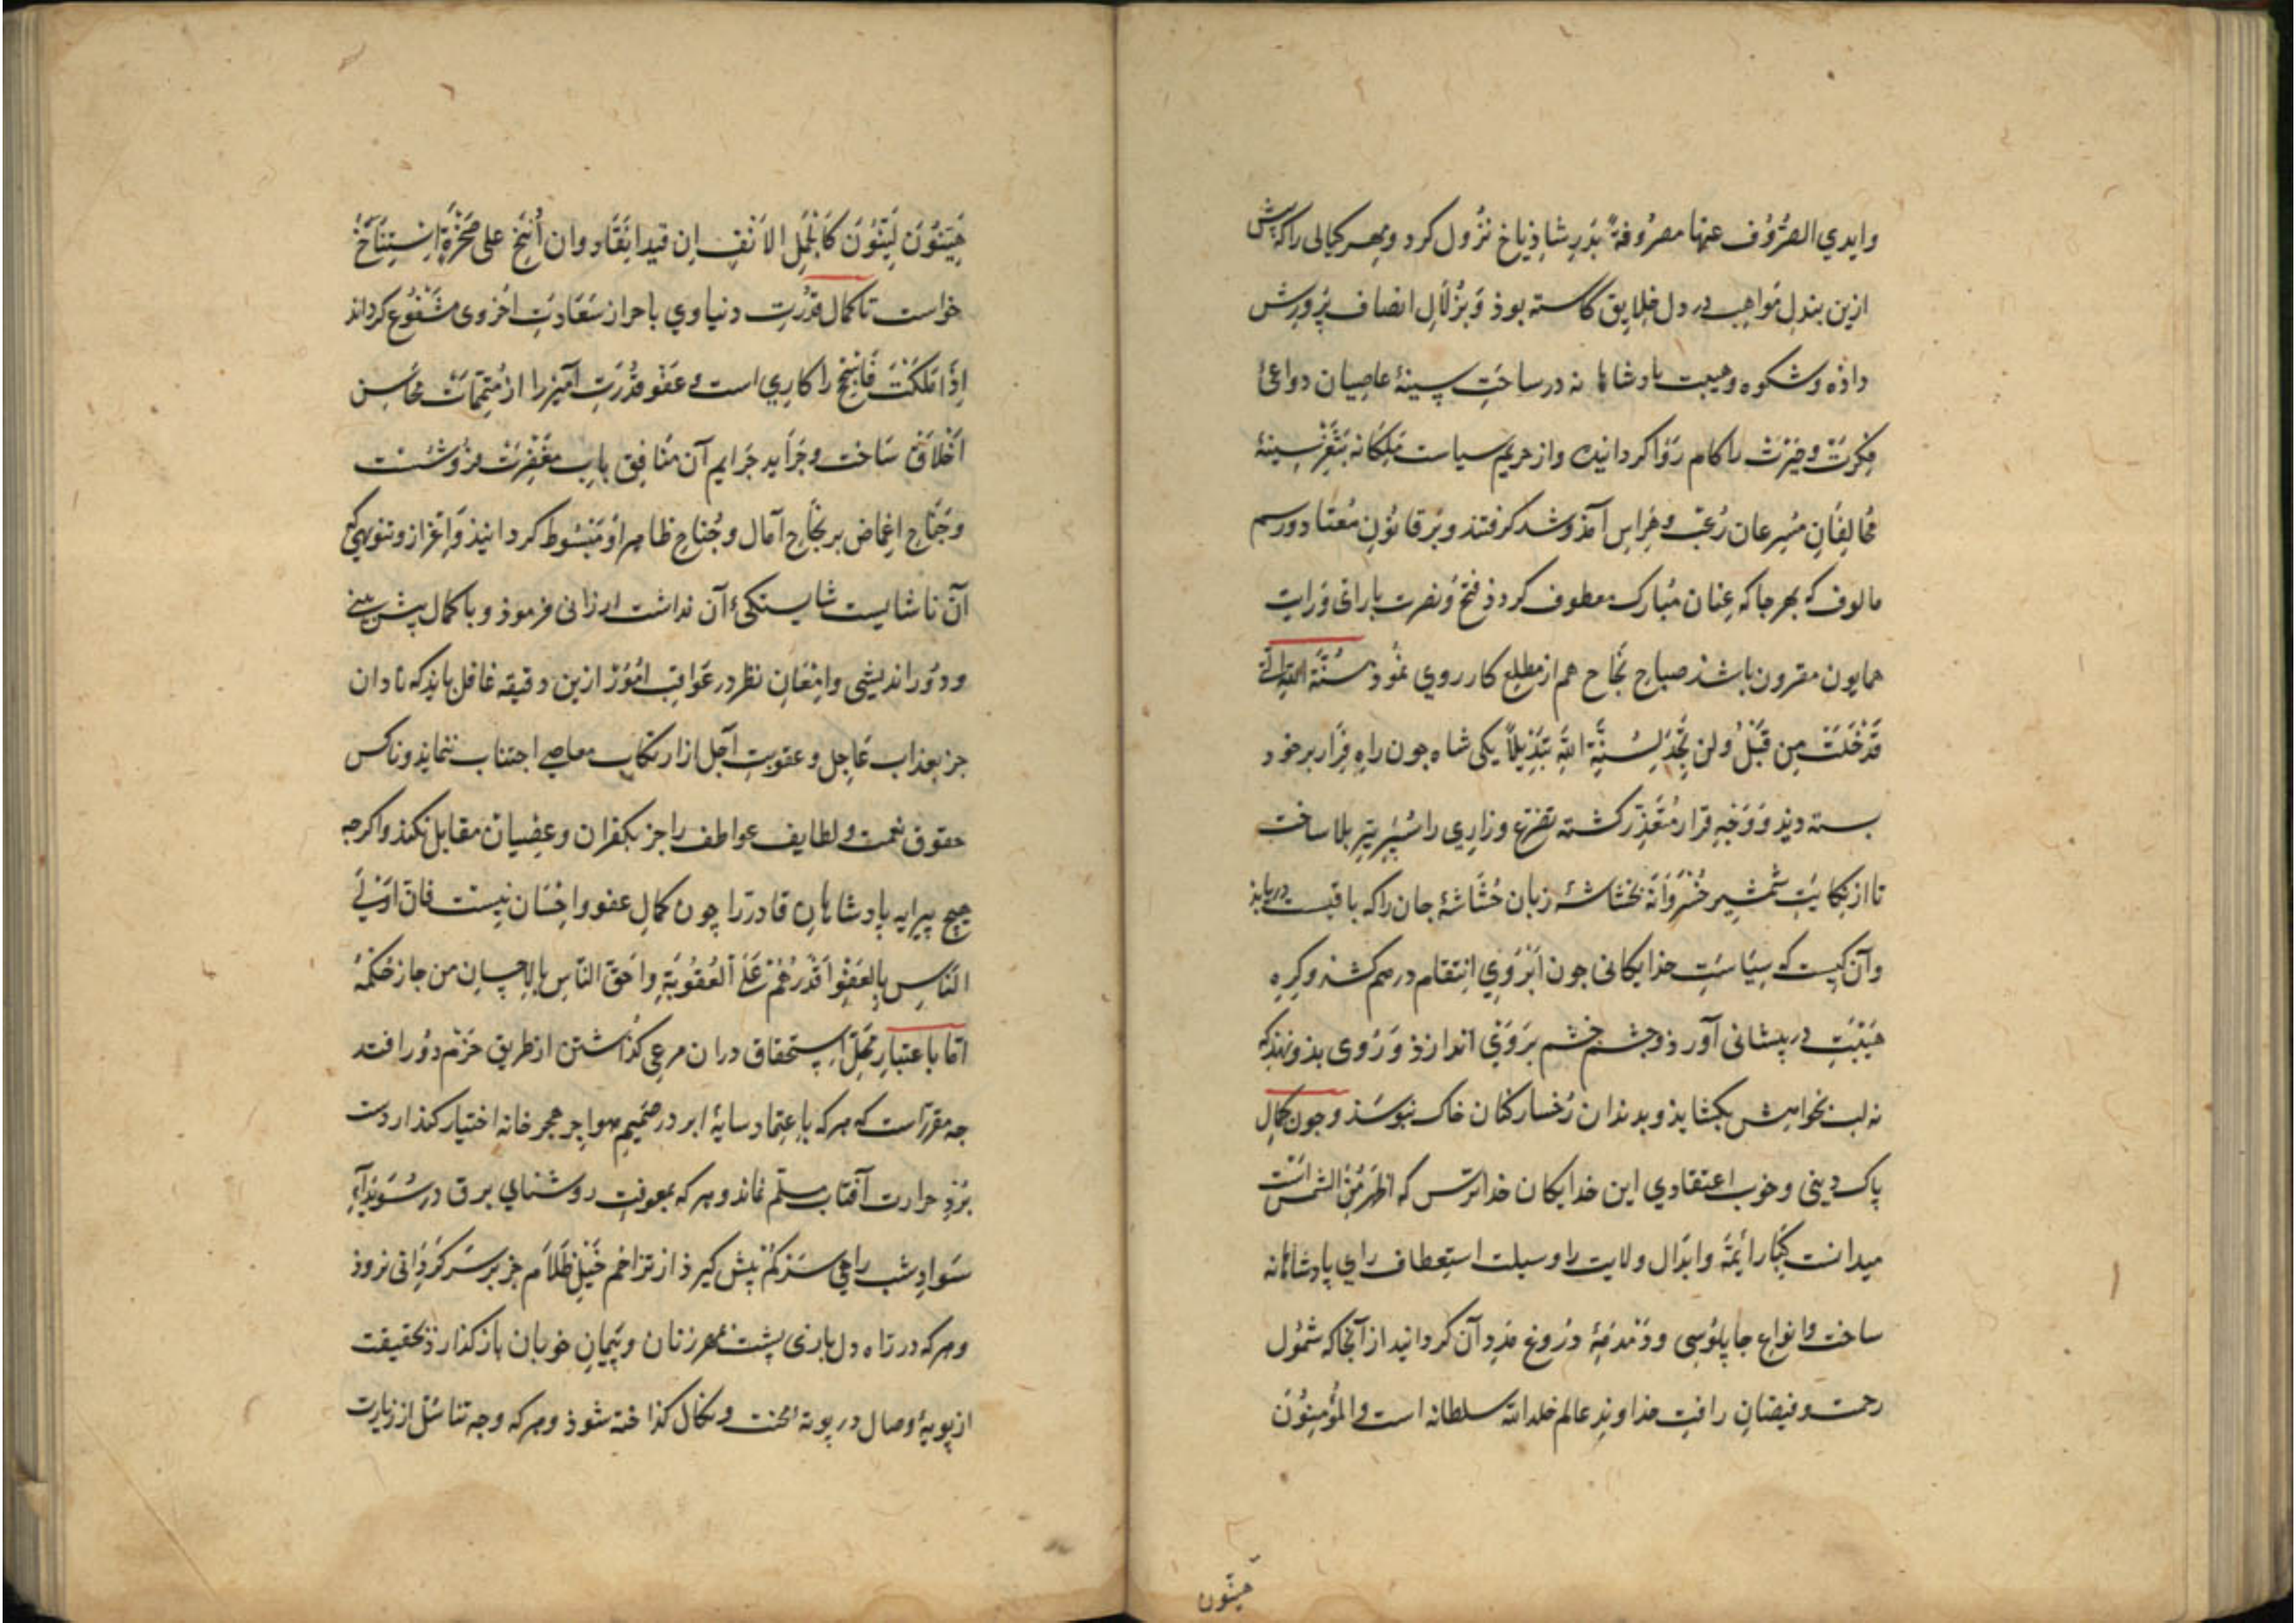 وایدي الصُرُوف عنها مصرُوفةً بدَرِ شاذیاخ نزُول کرد و مهر کیالی را که پیش
ازین ببذلِ مَواهِب در دل خلایق کاشته بوذ وَ بزُلالِ انصاف پَرورِش
داذه و شکوه و هیبت بادشاها نه در ساحَتِ سینۀ عاصیان دواعیٔ
فکرت و حیرت را کام رَوا کردانیده و از حریم سیاست مَلِکانه بثَغرِ سینۀ
مُخالِفان مُسرِعان رُعب و هِراس آمذ و شد کرفتند و بَر قانُونِ مُعتاد و رسم
مالوف که بهر جا که عِنان مُبارک معطوف کردد فتح و نصرت با رای و رایت
همایون مقرون باشذ صباح نجَاح هم از مطلع کار روي نمُوذ سُنَّةَ الله الَّتی
قَدْ خَلَتْ مِن قَبْلُ ولن تَجِدَ لِسُنَّةِ اللهِ تَبْدِیلاً یکی شاه جون راهِ فِرَار بر خود
بسته دیذ وَ وَجْهِ قرار مُتَعَذِّر کشته تضرّع و زاری را سُپَرِ تیرِ بلا ساخت
تا از نِکایتِ شمْشیرِ خُسْرَوَانه بخشاشۀ زبان حُشاشۀ جان را که باقیست دریابذ
وآن کیست که سیَاسَتِ خذایکانی جون اَبْرُوي انتقام در هم کشذ و کِره
هَیْبَت در پیشانی آورذ و جشم خشم بروَي اندازذ وَ رُوی بذو نهذ که
نه لب بخواهش بکشایذ و بدندان رُخسار کنان خاک ببوسَذ و جون کمالِ
پاک دینی و خوب اعتقادي این خدایکان خداترس که اَظهَرُ مِنَ الشمس است
میدانست کِبَار اَیمَّهٔ و ابدَال ولایت را وسیلت استِعطاف رای پادشاهانه
ساخت و انواع جاپلوُسی و دَمدمَهٔ دُروغ مَدِد آن کردانید از آنجا که شمُول
رحمت و فیضَانِ رافتِ خداوندِ عالم خلد الله سلطانه است و المُؤمِنوُنَ
هَیّنون
هَیِّنُوْنَ لَیِّنُوْنَ کَالْجَمَلِ الاَنِفِ اِن قید انْقَاد و ان اُنِیْخَ علی صَخْرَةٍ اِسْتَنَاخَ
خواست تا کمال قدْرَتِ دنیاوي با حراز سَعَادَتِ اُخروی مشفُوع کرداند
اِذا مَلَکْتَ فَاَسْجِحْ را کار بي است و عفو قدْرَت آمیز را از مُتمِّماتِ محَاسِن
اَخْلاق سَاخت و جرَاید جَرایم آن مُنافِق بابِ مغفِرت فروشست
وجَنَاح اغِماض بر نجَاح آمال و جُناح ظاهر او مَبسُوط کردانیذ و اِعزاز و تنویهی که
آن ناشایست شایستکیٔ آن نداشت ارزانی فرموذ و با کمال پیش بینی
و دوُر اندیشی و اِمْعَانِ نظر در عَواقبِ امُوْر ازین دقیقه غافل ماند که نادان
جز بعذاب عَاجِل و عقوبتِ آجل از ارتکاب معاصی اجتناب ننمایذ و ناکس
حقوق نعمت و لطایف عواطف را جز بکفران و عِصیان مقابل نکنذ و اکرجه
هیج پیرایه پادشاهانِ قادر را چون کمالِ عفو و اِحْسَان نیست فانّ اَوْلَی
النَاسِ بِالعَفْوِ اَقْدَرُهُمْ عَلَی العُقُوْبَةِ و اَحَقّ النّاس بالاِحسِان من جاز حُکمُهُ
امّا باعتبار محَلِّ استحقاق دران مرعی کذاشتن از طریق حَزْم دوُر افتد
جه مقرر آست که هر که باعتِماد سایۀ ابر در صَمیمِ هَواجِرِ هجر خانه اختیار کند از دست
بُرْدِ حرارتِ آفتاب مسلّم نماند و هر که بمعونتِ روشنایي برق در سُوَیْدَآءِ
سَوادِ شب راهی سرکم پیش کیرذ از تزاحُم خَیْلِ ظَلَام جز بر سَرکَردانی نروذ
و هر که در راه دل بازی پشت بمهر زنان و پَیمانِ خوبان بازکذارذ بحقیقت
از بویۀ وصال در بوتۀ محنت و نکال کداخته شوذ و هر که وجه تناسُل از زیارت